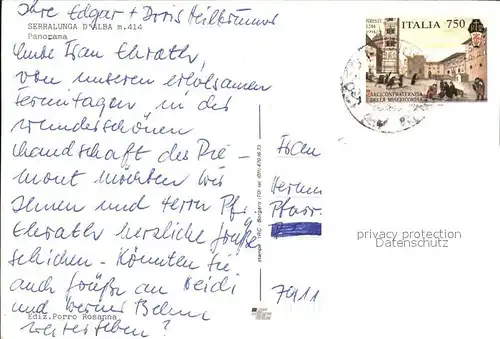 Ihre Edgar + Doris Heilbrunner
SERRALUNGA D'ALBA m.414
Panorama
Liebe Frau Ehrath,
von unseren erholsamen
Ferientagen in der
wunderschönen
Landschaft des Pie-
mont möchten wir
Ihnen und Herrn Pfr.
Ehrath herzliche Grüße
schicken - Könnten Sie
auch Grüße an Heidi
und Werner Behm
weitergeben?
Ediz. Porro Rosanna
stampa
FIRENZE
1244
1994
ITALIA 750
ARCICONFRATERNITA
DELLA MISERICORDIA
Frau
Herrn
Pfarr.
privacy protection
Datenschutz
7911